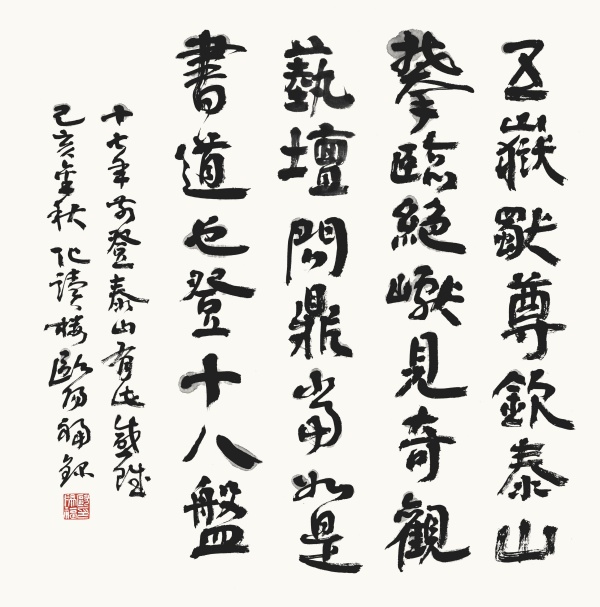 五嶽獨尊欽泰山
攀臨絕巘見奇觀
藝壇問鼎當如是
書道也登十八盤
十七年前登泰山有此感賦
己亥金秋 讀樓歐陽